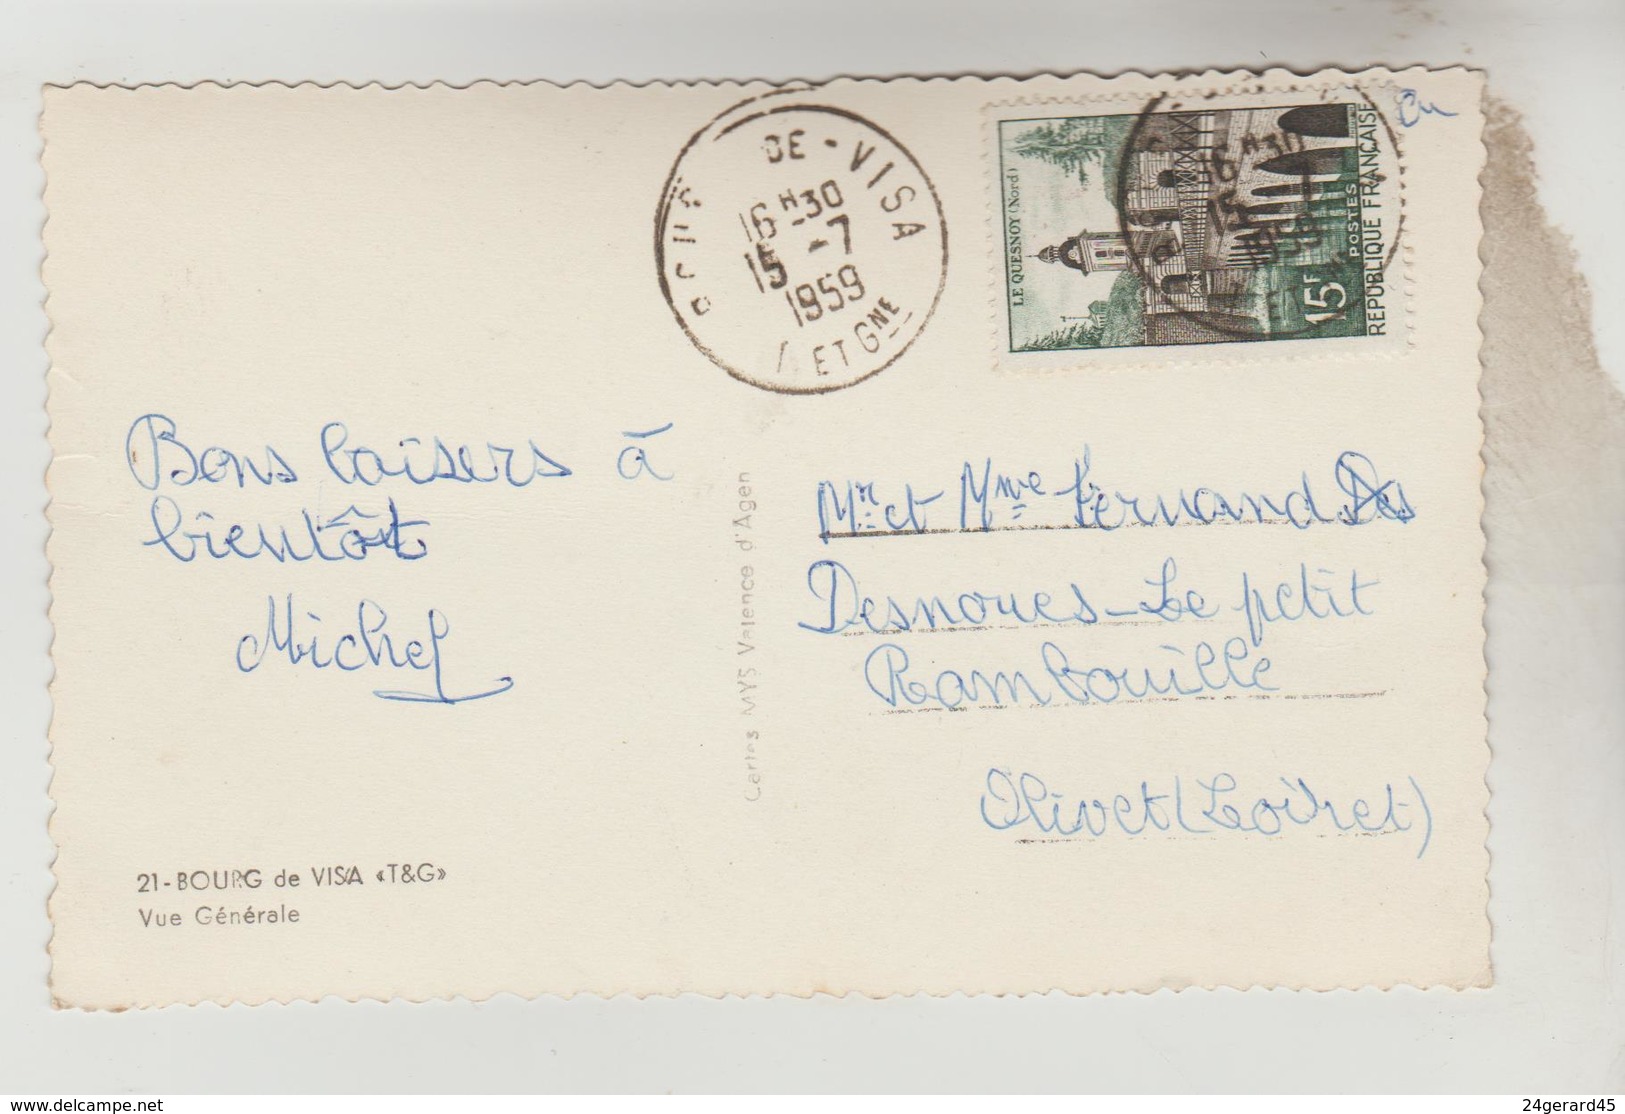 DE - VISA
16 H 30
15 - 7
1959
ET GNE
LE QUESNOY (Nord)
16 H 30
15
1959
15F
POSTES
REPUBLIQUE FRANÇAISE
Bons baisers à
bientôt
Michel
Cartes MYS Valence d'Agen
Mr et Mme Fernand Des
Desnoues - Le petit
Rambouille
Olivet (Loiret)
21 - BOURG de VISA «T&G»
Vue Générale
www.delcampe.net
24gerard45